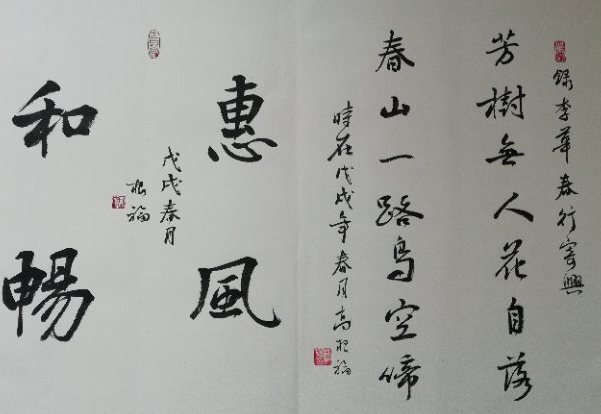 錄李華春行寄興
芳樹無人花自落
春山一路鳥空啼
時在戊戌年春月高福
惠風
和暢
戊戌春月
福